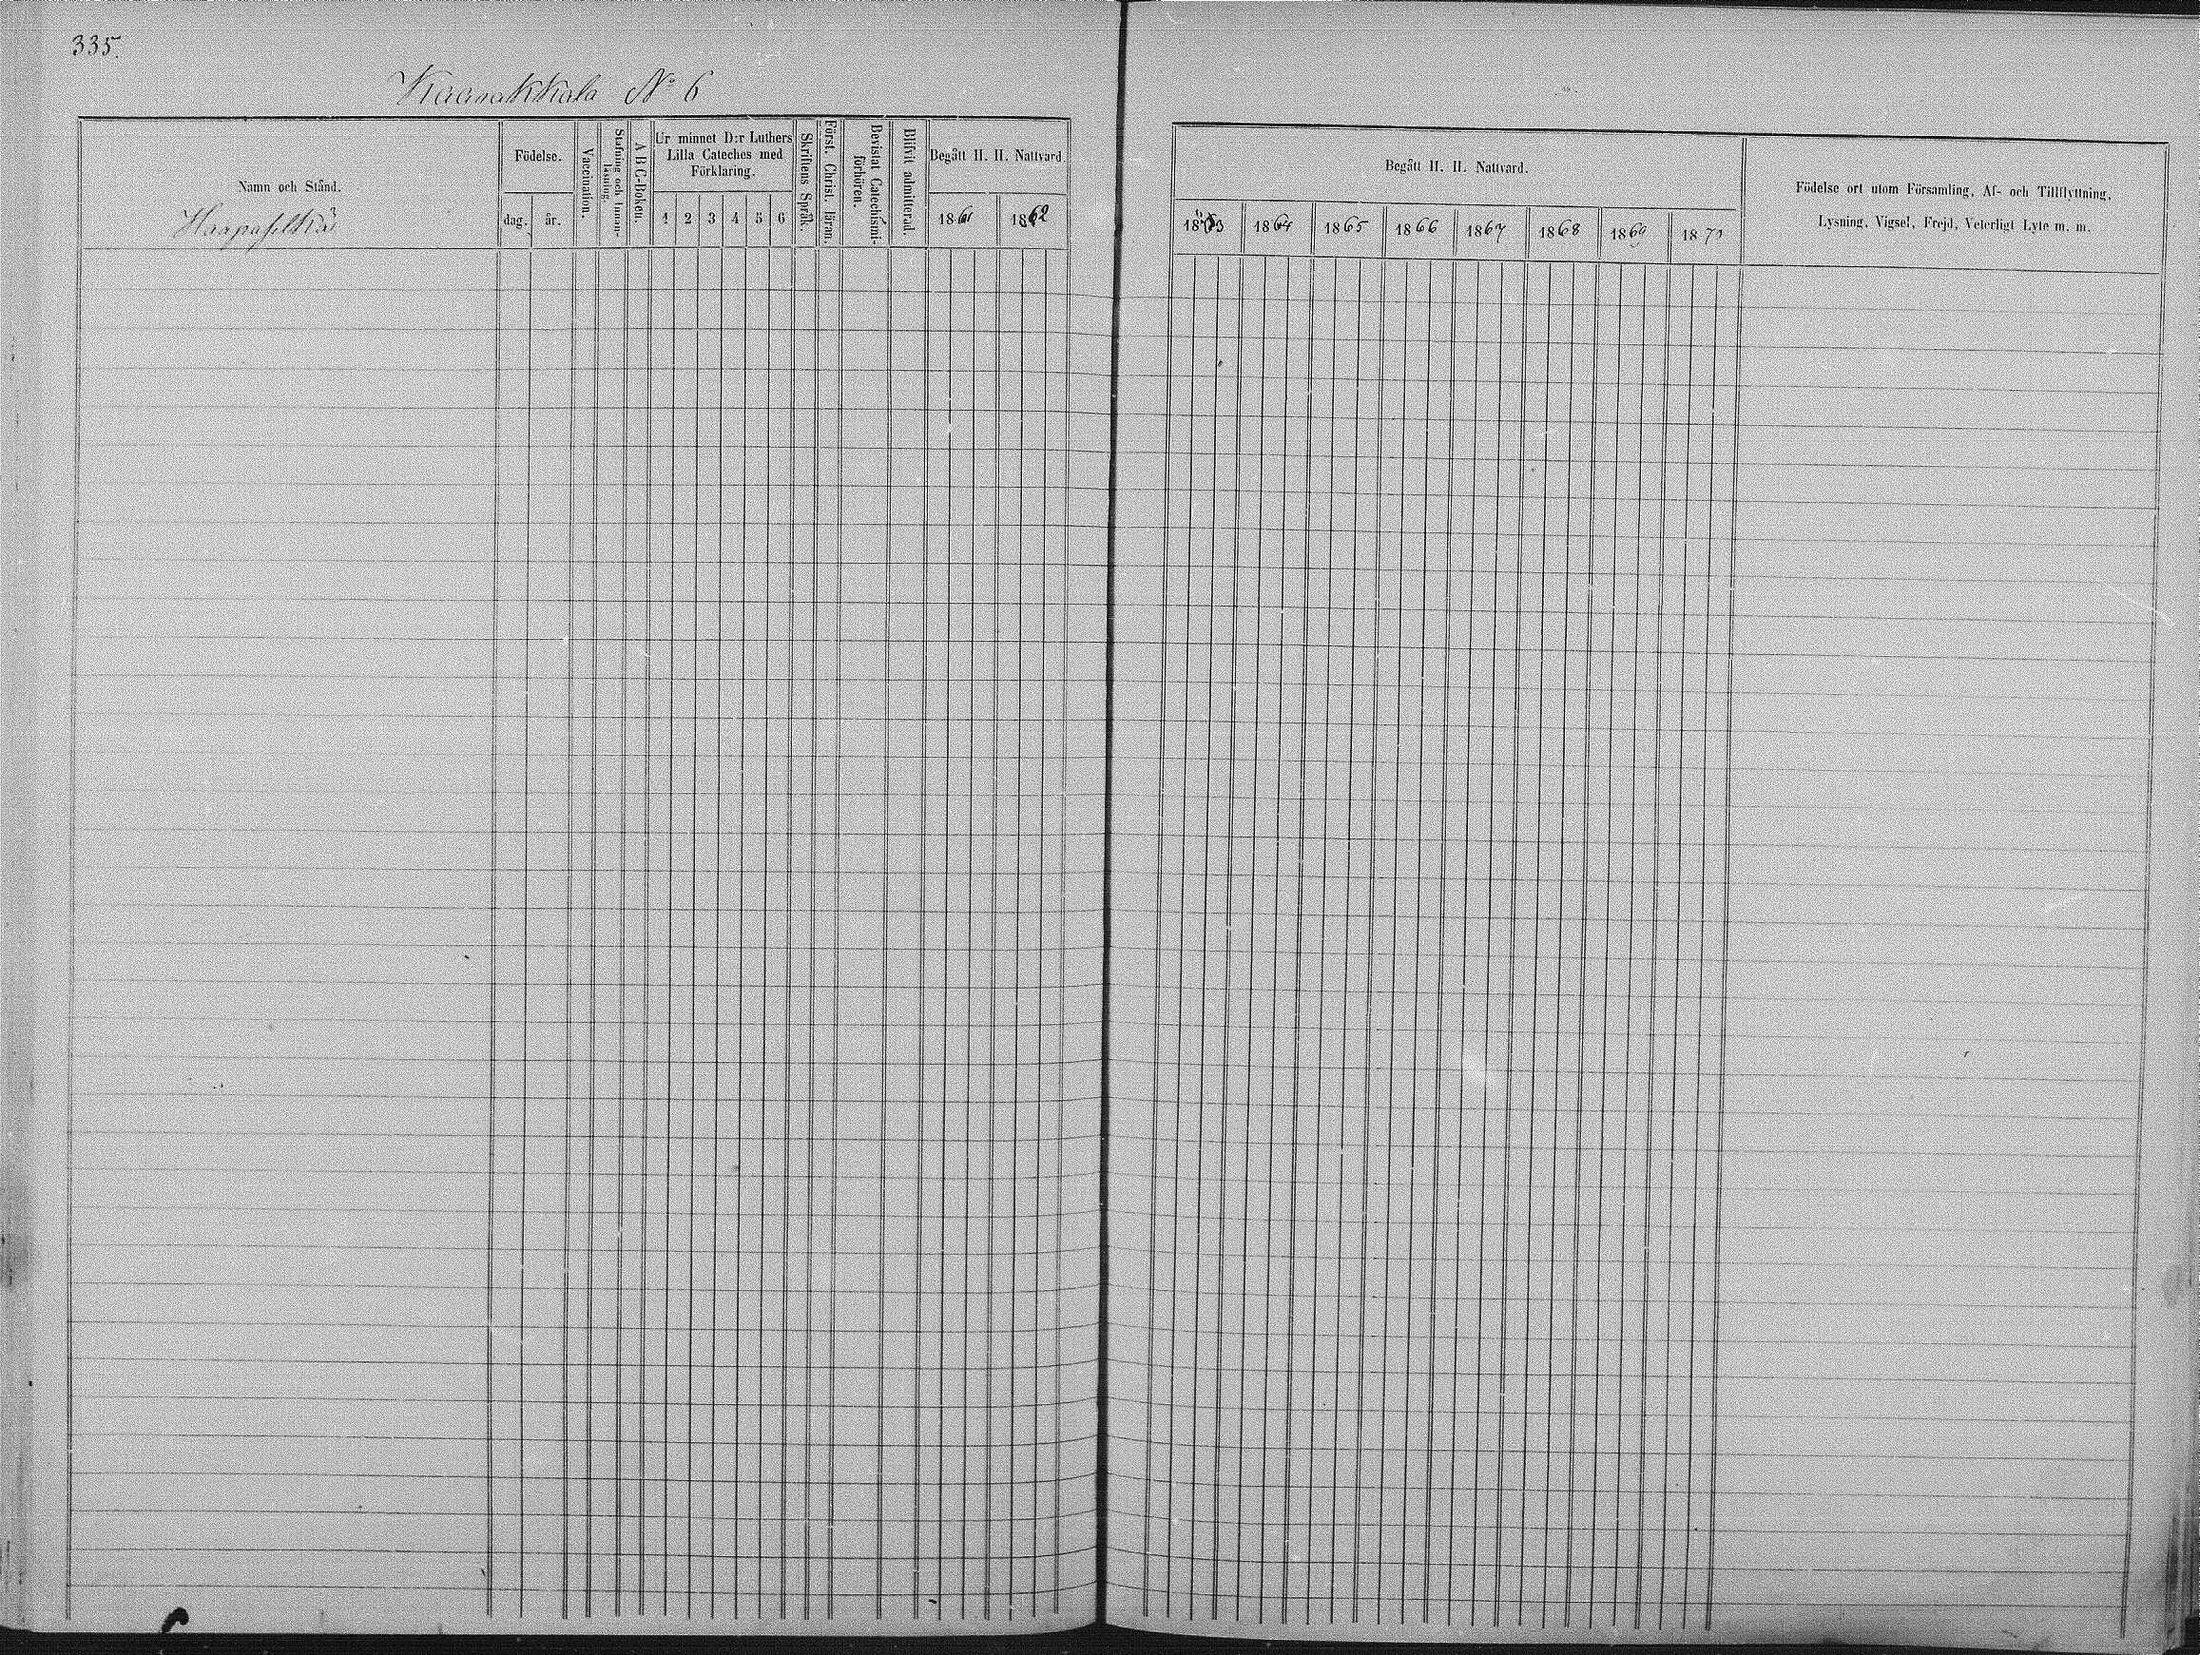 335.
Kaanakkala No 6
Namn och Stånd.
Födelse.
dag.
år.
Vaccination.
Stafning och Innan-
läsning.
A B C-Boken.
Ur minnet D:r Luthers
Lilla Cateches med
Förklaring.
1 2 3 4 5 6
Skriftens Språk.
Först. Christ. läran.
Bevistat Catechismi-
förhören.
Blifvit admitterad.
Begått H. H. Nattvard.
1861 1862
Begått H. H. Nattvard.
1863 1864 1865 1866 1867 1868 1869 1870
Födelse ort utom Församling, Af- och Tillflyttning,
Lysning, Vigsel, Frejd, Veterligt Lyte m. m.